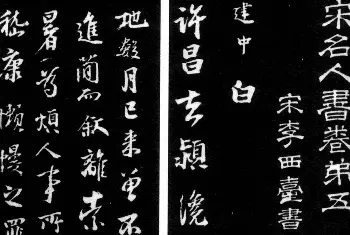 宋名人書卷弟五
宋李西臺書
建中白
許昌去潁繞
地數月已來曾不
進簡而敘離索
暑?煩人事所
嵇康懶慢之罪